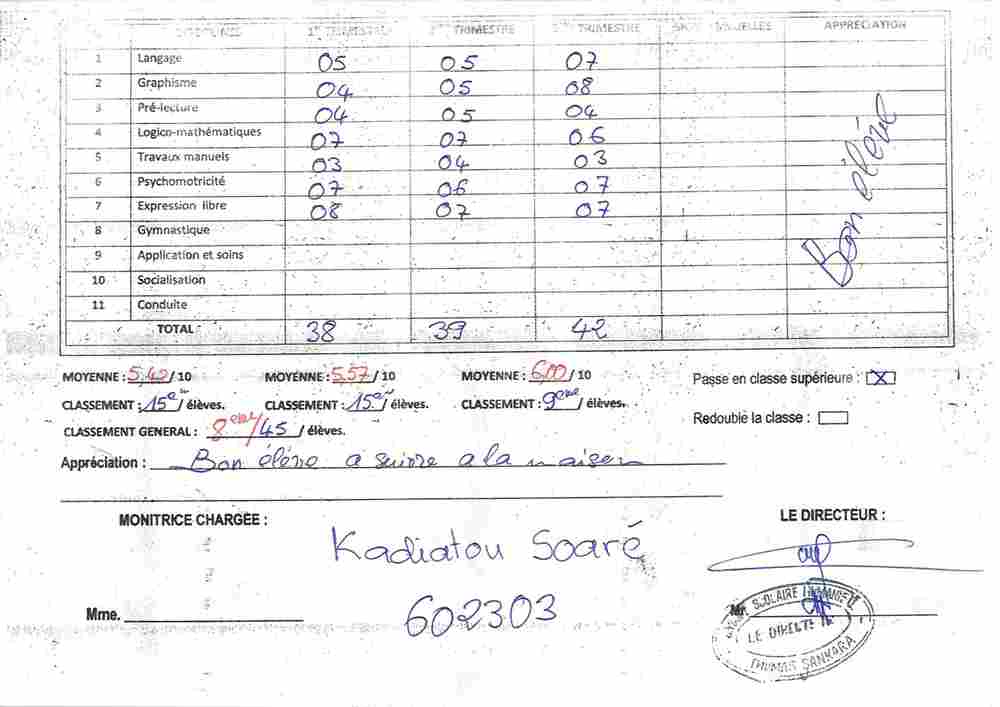 DISCIPLINES 1er TRIMESTRE 2ème TRIMESTRE 3ème TRIMESTRE ANNUELLES APPRÉCIATION
1 Langage 05 05 07
2 Graphisme 04 05 08
3 Pré-lecture 04 05 04
4 Logico-mathématiques 07 07 06
5 Travaux manuels 03 04 03
6 Psychomotricité 07 06 07
7 Expression libre 08 07 07
8 Gymnastique
9 Application et soins
10 Socialisation
11 Conduite
Bon élève
TOTAL 38 39 42
MOYENNE : 5,42 / 10 MOYENNE : 5.57 / 10 MOYENNE : 6,00 / 10 Passe en classe supérieure : X
CLASSEMENT : 15e / élèves. CLASSEMENT : 15e / élèves. CLASSEMENT : 9eme / élèves.
Redouble la classe :
CLASSEMENT GENERAL : 8eme/45 / élèves.
Appréciation : Bon élève a suivre a la maison
MONITRICE CHARGÉE : LE DIRECTEUR :
Kadiatou Soaré
Mme. 602303
SCOLAIRE
LE DIRECTEUR
THOMAS SANKARA